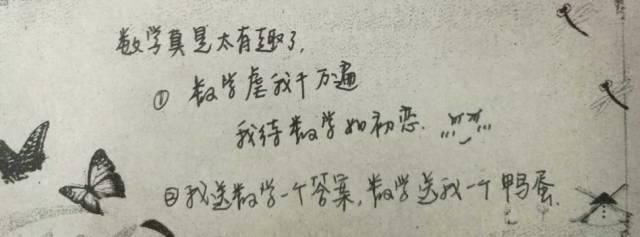 数学真是太有趣了,
① 数学虐我千万遍
我待数学如初恋.
②我送数学一个答案,数学送我一个鸭蛋.